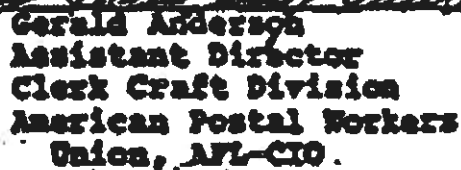 Gerald Anderson
Assistant Director
Clerk Craft Division
American Postal Workers
Union, AFL-CIO.